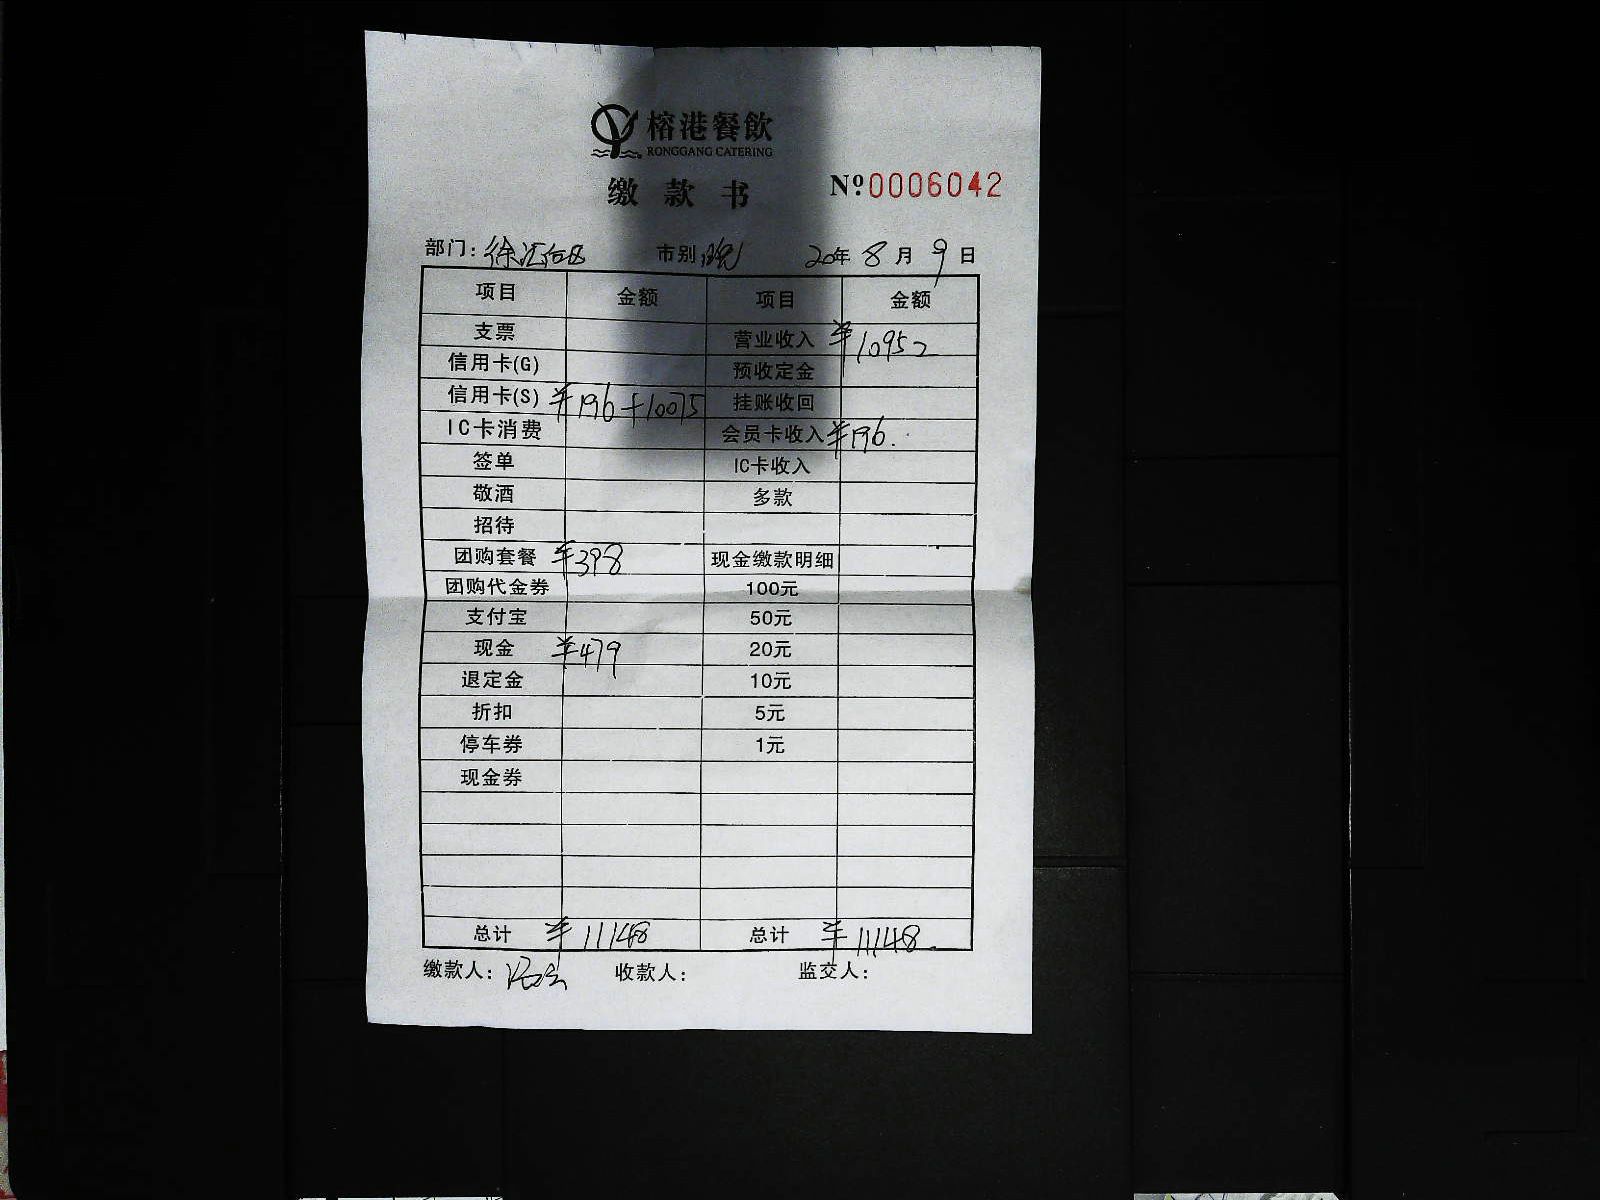 榕港餐飲
RONGGANG CATERING
缴款书
№0006042
部门: 徐汇 市别: 晚 20年 8月 9日
项目 金额 项目 金额
支票 营业收入 ¥10952
信用卡(G) 预收定金
信用卡(S) ¥196+10075 挂账收回
IC卡消费 会员卡收入 ¥196.
签单 IC卡收入
敬酒 多款
招待
团购套餐 ¥398 现金缴款明细
团购代金券 100元
支付宝 50元
现金 ¥479 20元
退定金 10元
折扣 5元
停车券 1元
现金券
总计 ¥11148 总计 ¥11148.
缴款人: 收款人: 监交人: